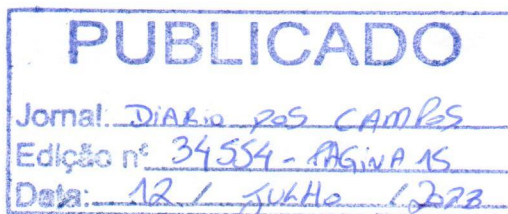 PUBLICADO
Jornal: DIARIO DOS CAMPOS
Edição nº 34554 - PÁGINA 15
Data: 12 / JULHO / 2023